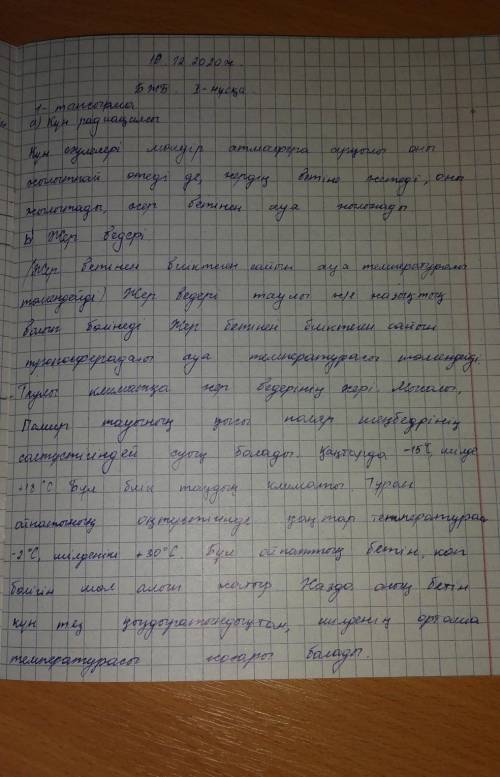 10.12.2020ж.
БЖБ. I-нұсқа.
1-тапсырма
а) Күн радиациясы
Күн сәулелері мөлдір атмосфера арқылы оны
жылытпай өтеді де, жердің бетіне жетеді, оны
жылытады, жер бетінен ауа жылынады
Б) Жер бедері
(Жер бетінен биіктеген сайын ауа температурасы
төмендейді) Жер бедері таулы
болып бөлінеді Жер бетінен биіктеген сайын
тропосферадағы ауа температурасы төмендейді.
Таулы климатқа жер бедерінің әсері. Мысалы,
Памир тауының қысы поляр шеңберінің
солтүстігіндей суық болады. Қаңтарда -15°C, шілде
+18°C Бұл биік таудың климаты. Тұран
ойпатының оңтүстігінде қаңтар температурасы
-2°C, шілденікі +30°C. Бұл ойпаттың бетін, көп
бөлігін шөл алып жатыр Жазда ашық бетін
күн тез қыздыратындықтан, шілденің орташа
температурасы жоғары болады.